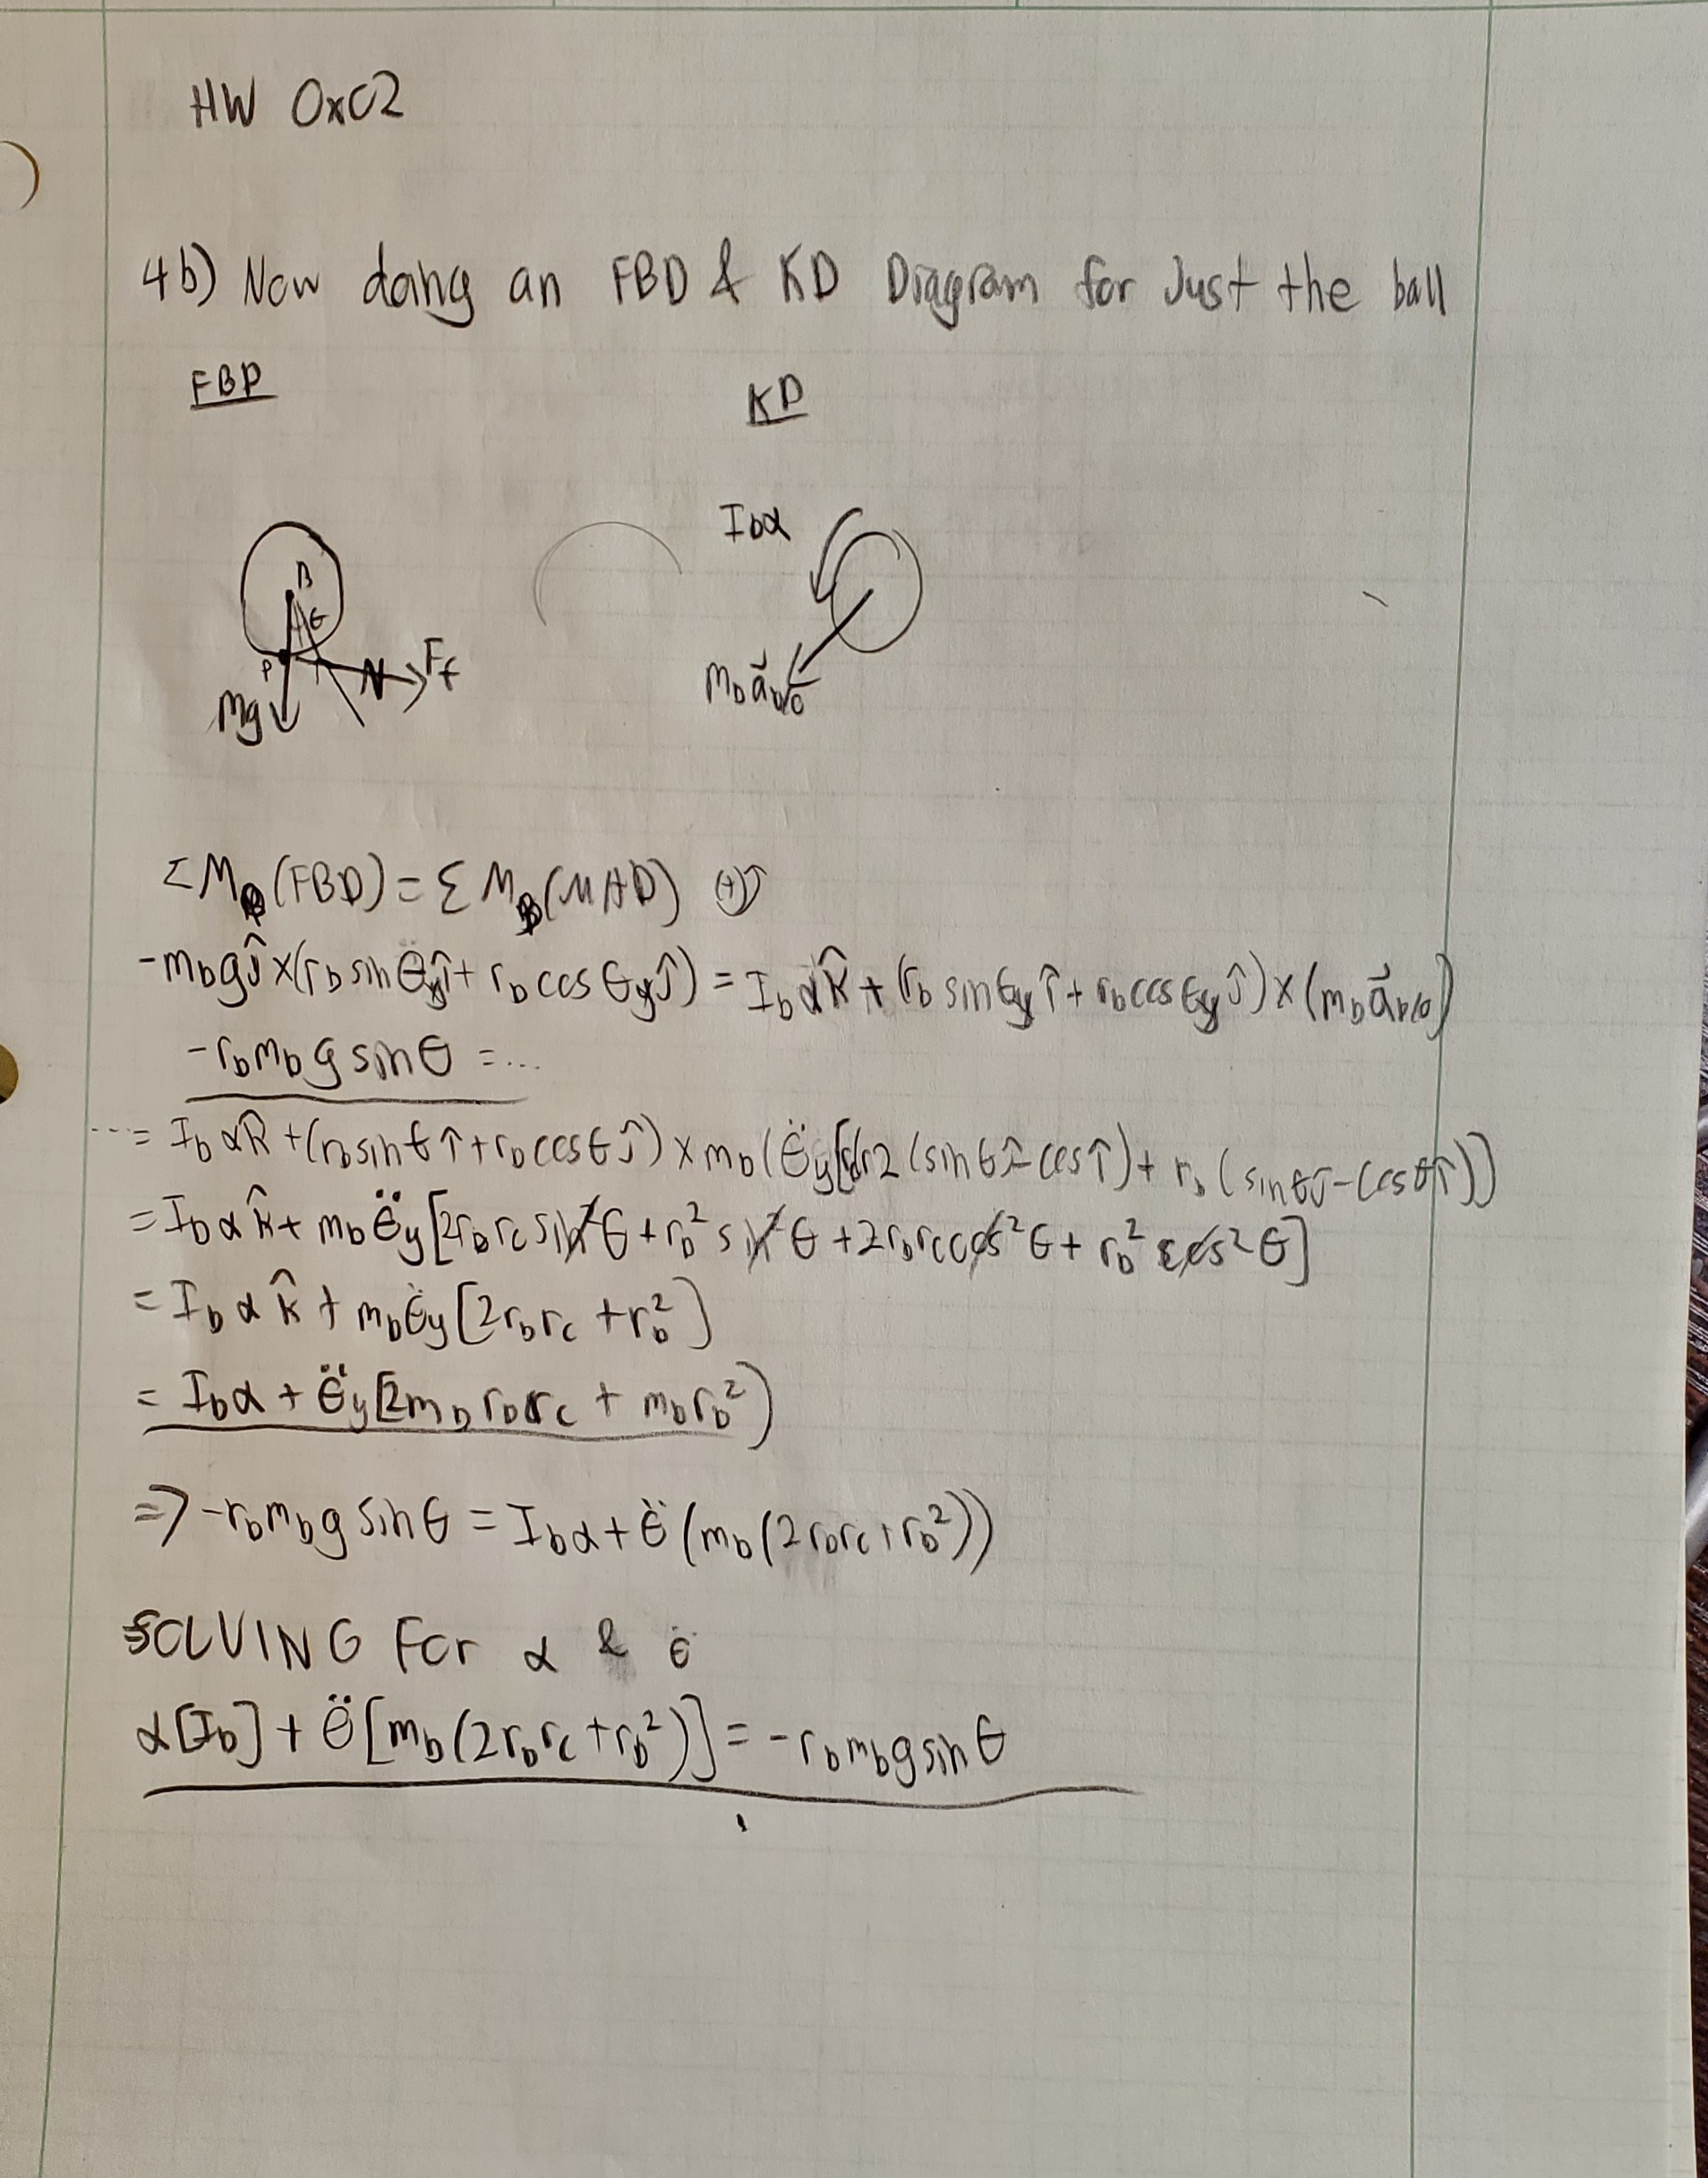 HW 0x02
4b) Now doing an FBD & KD Diagram for Just the ball
FBD
KD
Ibα
B
θ
P
N
Ff
Mg
mb a⃗b/o
ΣM (FBD) = ΣMB(MAD) (+)
-mbgĵ×(rb sinθyî + rb cosθyĵ) = Ibαk̂ + (rb sinθyî + rb cosθyĵ)×(mb a⃗b/o)
-rbmbg sinθ = ...
... = Ibαk̂ + (rbsinθî + rbcosθĵ) × mb(θ̈y[ 2 (sinθĵ - cosî) + rb (sinθĵ - cosθî)])
= Ibαk̂ + mbθ̈y[2rbrc sin²θ + rb² sin²θ + 2rbrc cos²θ + rb² cos²θ]
= Ibαk̂ + mbθ̈y[2rbrc + rb²]
= Ibα + θ̈y[2mbrbrc + mbrb²)
=> -rbmbg sinθ = Ibα + θ̈(mb(2rbrc + rb²))
SOLVING For α & θ̈
α[Ib] + θ̈[mb(2rbrc + rb²)] = -rbmbg sinθ